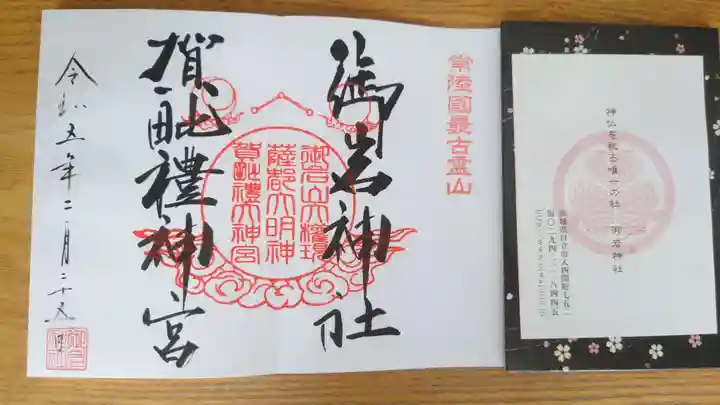 神仏を祀る唯一の社 御岩神社
茨城県日立市入四間町七五二
常陸國最古霊山
御岩神社
御岩山大権現
薩都大明神
賀毗禮神宮
賀毗禮神宮
令和五年二月二十五日